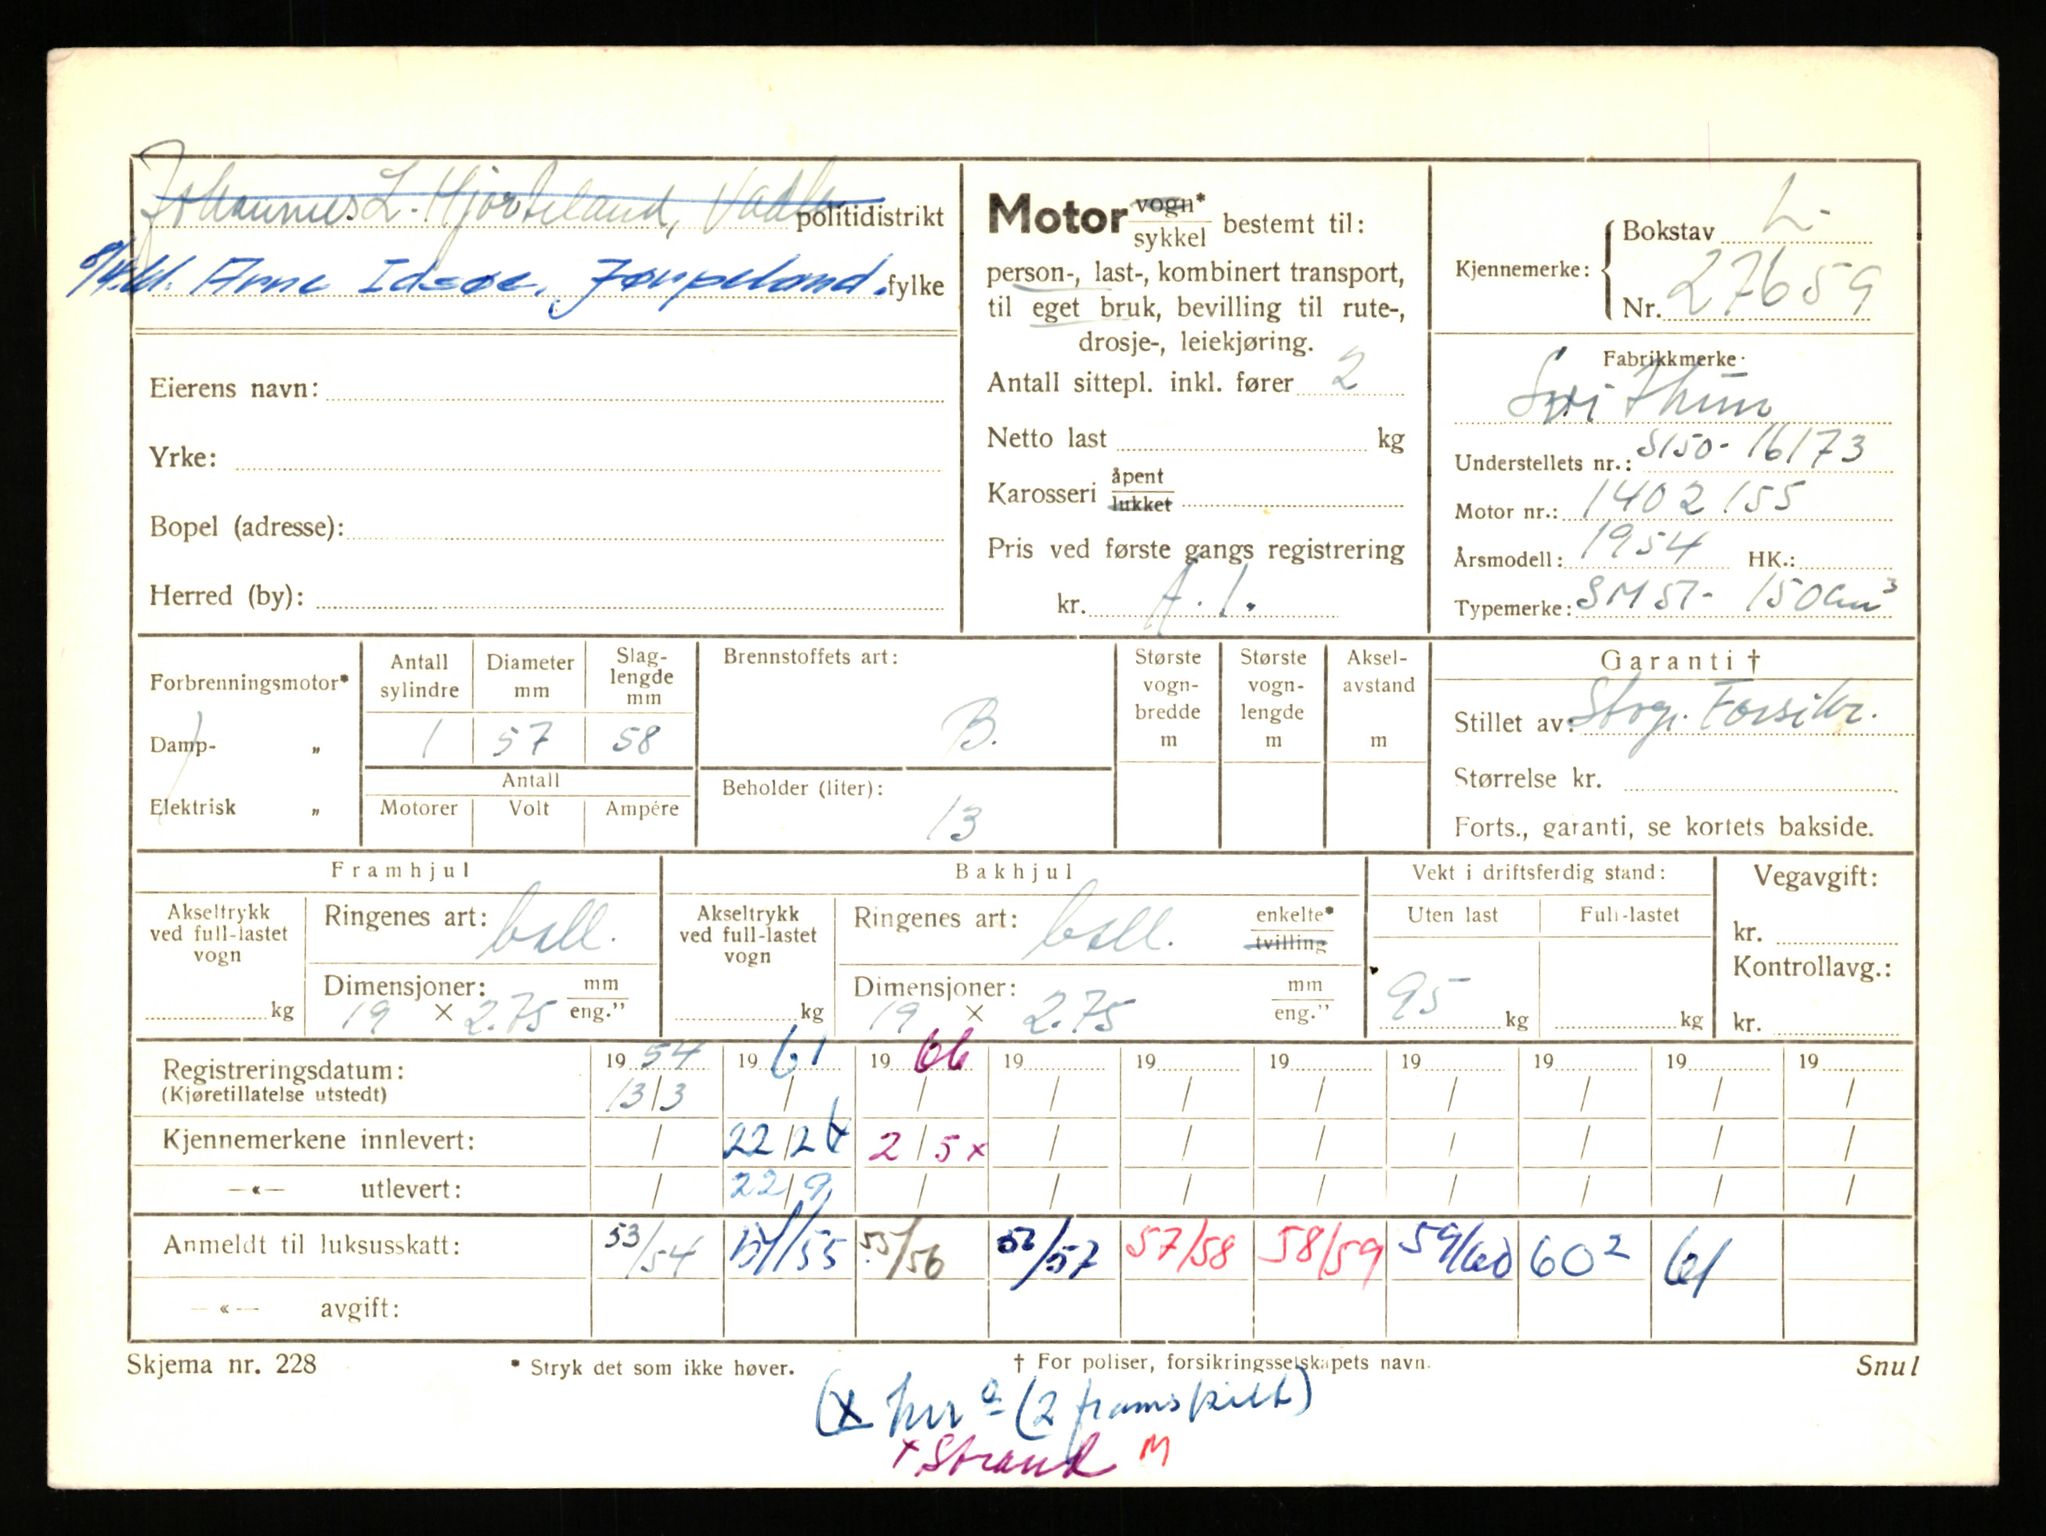 Johannes L. Hjorteland, Vadla politidistrikt
Arne Idsøe, Jørpeland. fylke
Eierens navn:
Yrke:
Bopel (adresse):
Herred (by):
Motor vogn* sykkel bestemt til:
person-, last-, kombinert transport,
til eget bruk, bevilling til rute-,
drosje-, leiekjøring.
Antall sittepl. inkl. fører 2
Netto last kg
Karosseri åpent lukket
Pris ved første gangs registrering
kr.
Kjennemerke: Bokstav L-
Nr. 27659
Fabrikkmerke:
Svithun
Understellets nr.: S150-16173
Motor nr.: 1402155
Årsmodell: 1954 HK.:
Typemerke: SM 51- 150cm³
Forbrenningsmotor*
Damp- „
Elektrisk „
Antall sylindre Diameter mm Slag- lengde mm
1 57 58
Antall
Motorer Volt Ampére
Brennstoffets art:
B.
Beholder (liter):
13
Største vogn- bredde m
Største vogn- lengde m
Aksel- avstand m
Garanti †
Stillet av: Storg. Forsikr.
Størrelse kr.
Forts., garanti, se kortets bakside.
Framhjul
Akseltrykk ved full-lastet vogn kg
Ringenes art: ball.
Dimensjoner: mm eng."
19 × 2.75
Bakhjul
Akseltrykk ved full-lastet vogn kg
Ringenes art: ball. enkelte* tvilling
Dimensjoner: mm eng."
19 × 2.75
Vekt i driftsferdig stand:
Uten last Full-lastet
95 kg kg
Vegavgift:
kr.
Kontrollavg.:
kr.
Registreringsdatum: 19 54 19 61 19 66 19 19 19 19 19 19 19
(Kjøretillatelse utstedt) 13/3 / / / / / / / / /
Kjennemerkene innlevert: / 22/2 x 2/5 x / / / / / / /
—«— utlevert: / 22/9 / / / / / / / /
Anmeldt til luksusskatt: 53/54 54/55 55/56 56/57 57/58 58/59 59/60 60² 61
—«— avgift:
Skjema nr. 228 * Stryk det som ikke høver. † For poliser, forsikringsselskapets navn. Snul
(x (2 framskilt)
x Strand M